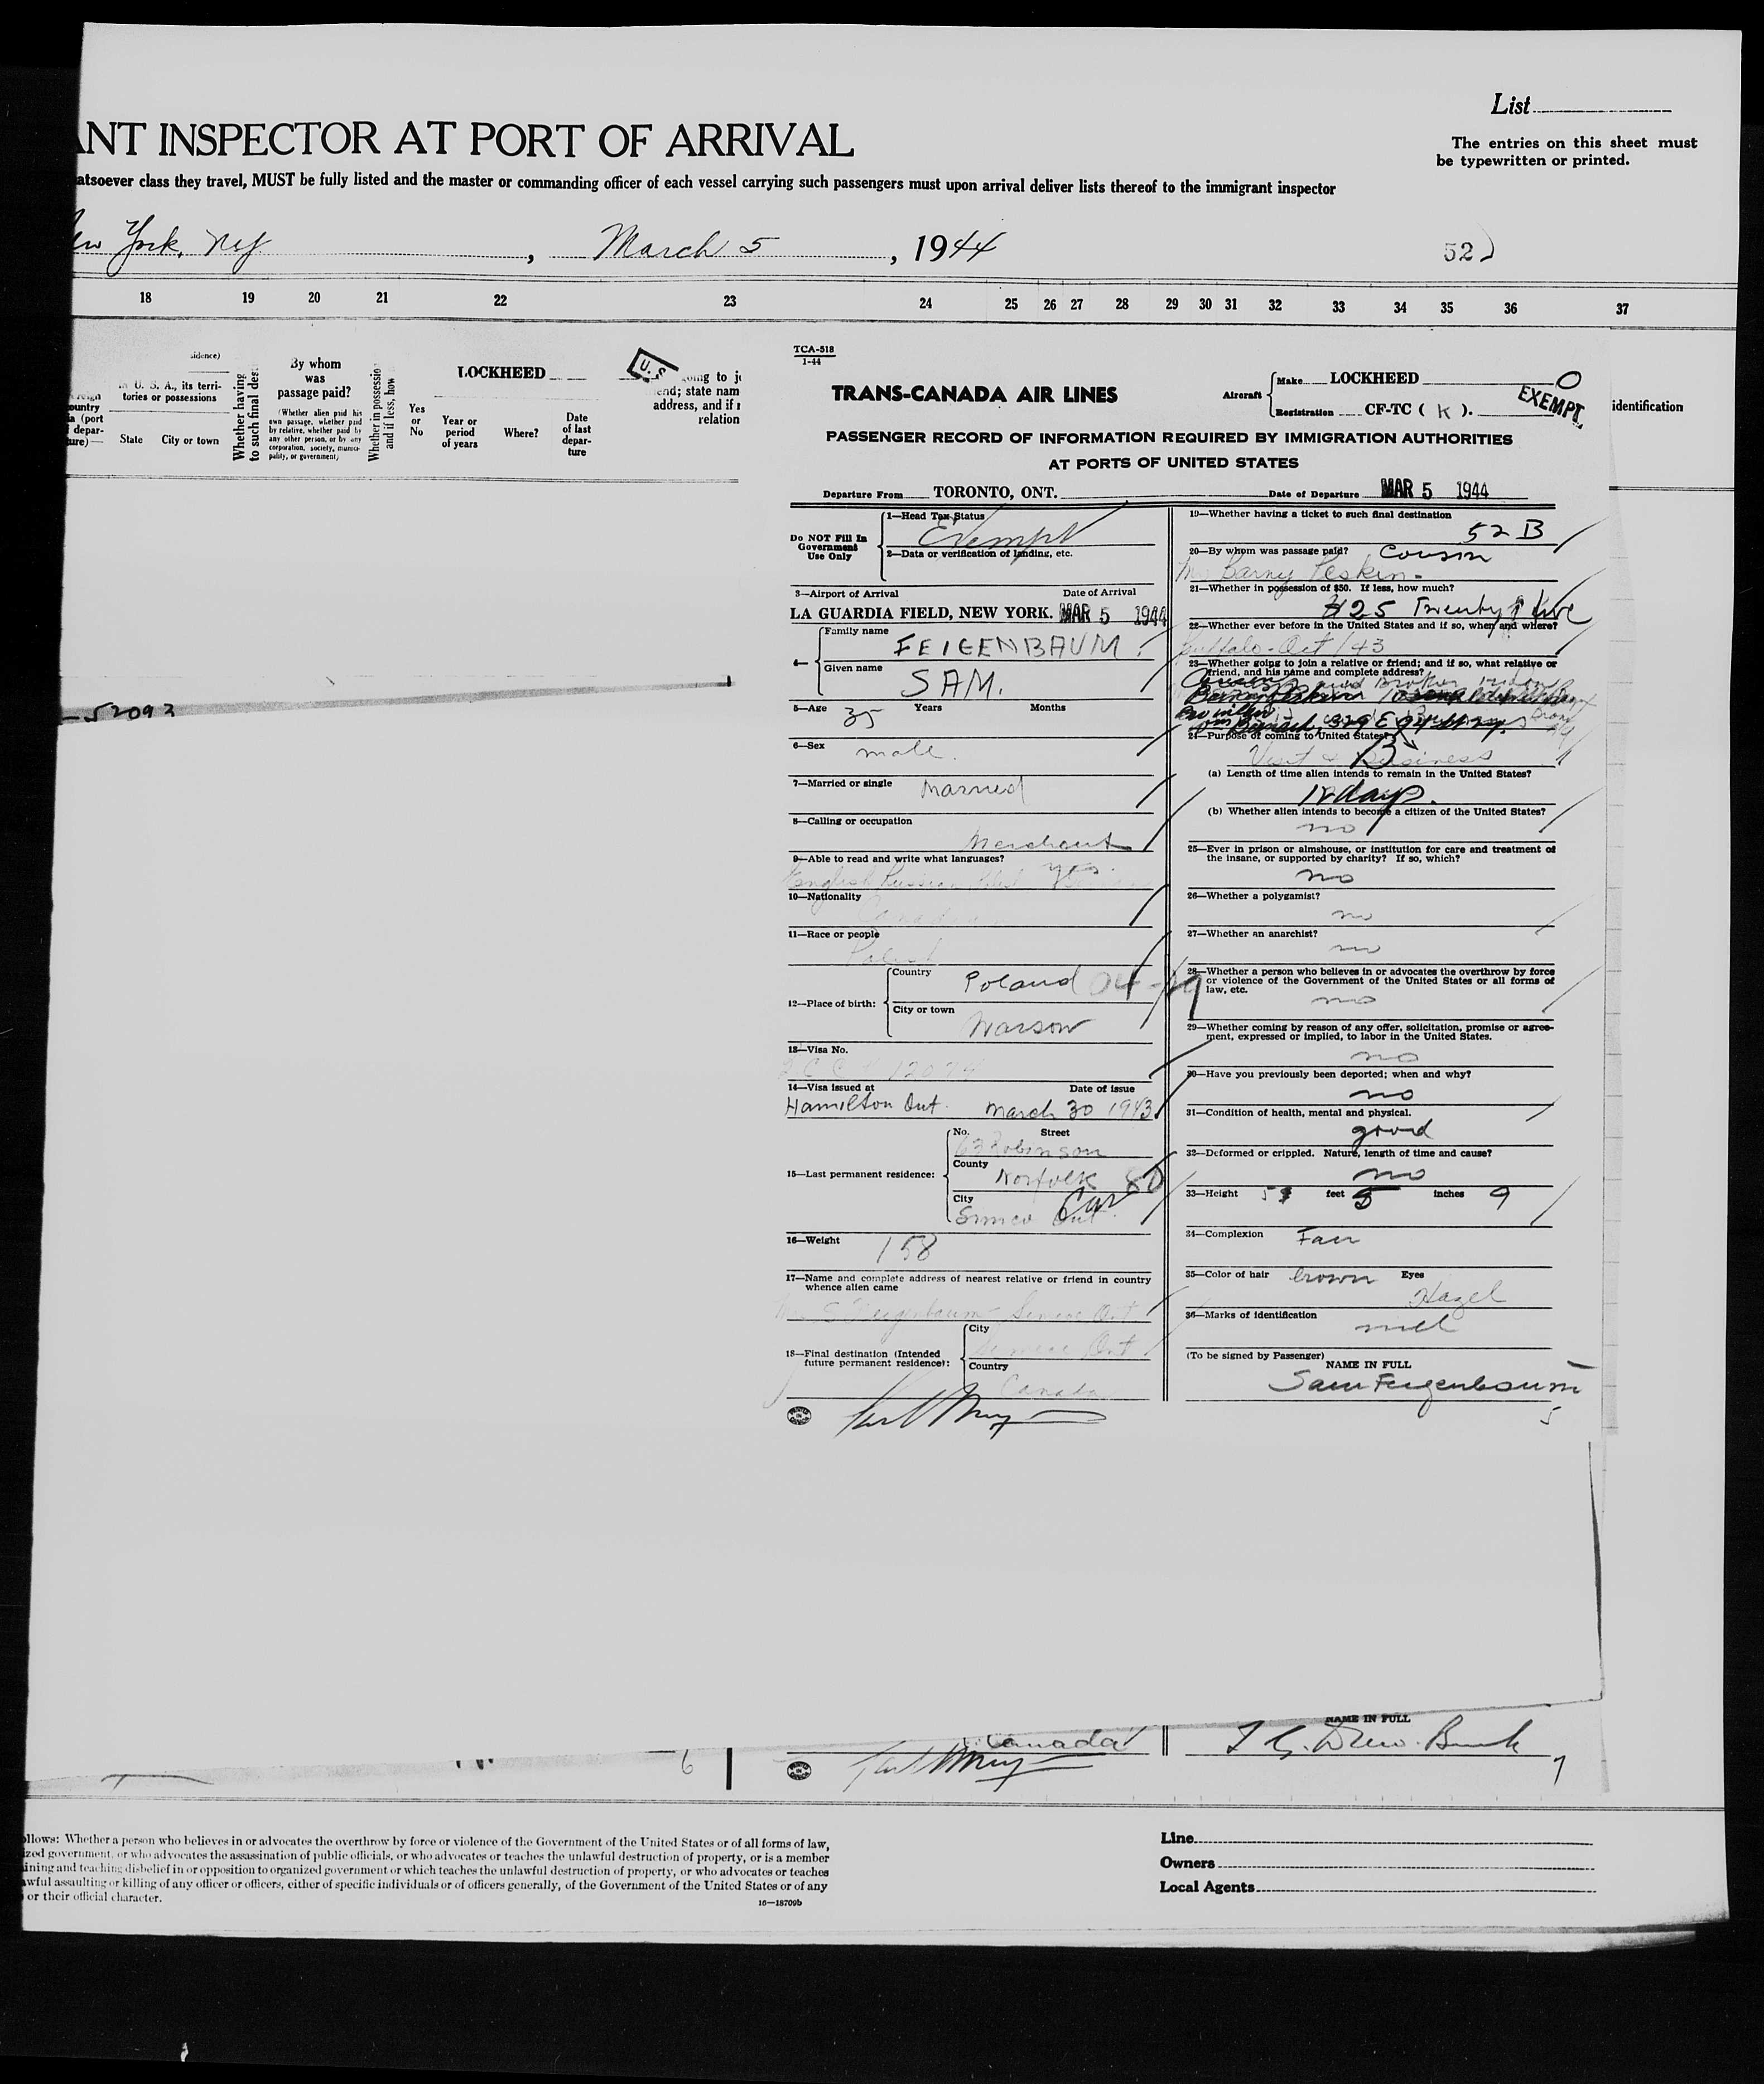 List
ANT INSPECTOR AT PORT OF ARRIVAL
The entries on this sheet must
be typewritten or printed.
atsoever class they travel, MUST be fully listed and the master or commanding officer of each vessel carrying such passengers must upon arrival deliver lists thereof to the immigrant inspector
York, , March 5, 1944
52
18 19 20 21 22 23 24 25 26 27 28 29 30 31 32 33 34 35 36 37
idence)
U. S. A., its terri-
tories or possessions
State City or town
Whether having
to such final des
By whom
was
passage paid?
(Whether alien paid his
own passage, whether paid
by relative, whether paid by
any other person, or by any
corporation, society, munici-
pality, or government)
Whether in possessio
and if less, how
LOCKHEED
Yes
or
No
Year or
period
of years
Where?
Date
of last
depar-
ture
U.S
oing to j
end; state nam
address, and if
relation
identification
TCA-518
1-44
TRANS-CANADA AIR LINES
Aircraft
Make LOCKHEED
Registration CF-TC ( K ).
EXEMPT
PASSENGER RECORD OF INFORMATION REQUIRED BY IMMIGRATION AUTHORITIES
AT PORTS OF UNITED STATES
Departure From TORONTO, ONT. Date of Departure MAR 5 1944
Do NOT Fill In
Government
Use Only
1—Head Tax Status
Exempt
2—Data or verification of landing, etc.
3—Airport of Arrival Date of Arrival
LA GUARDIA FIELD, NEW YORK. MAR 5 1944
4—
Family name
FEIGENBAUM.
Given name
SAM.
5—Age 35 Years Months
6—Sex male.
7—Married or single Married
8—Calling or occupation
Merchant
9—Able to read and write what languages?
yes
English Russian
10—Nationality
Canadian
11—Race or people
Polish
12—Place of birth:
Country
Poland
City or town
Warsow
13—Visa No.
14—Visa issued at Date of issue
Hamilton Ont. March 30 1943
15—Last permanent residence:
No. Street
63 Robinson
County
Norfolk
City
Simco Ont.
16—Weight 158
17—Name and complete address of nearest relative or friend in country
whence alien came
Feigenbaum Simcoe Ont
18—Final destination (Intended
future permanent residence):
City
Simcoe Ont
Country
Canada
19—Whether having a ticket to such final destination
52 B
20—By whom was passage paid? Cousin
Barny Peskin
21—Whether in possession of $50. If less, how much?
$25 Twenty five
22—Whether ever before in the United States and if so, when and where?
Buffalo - Oct / 43
23—Whether going to join a relative or friend; and if so, what relative or
friend, and his name and complete address?
24—Purpose of coming to United States?
B
Visit & Business
(a) Length of time alien intends to remain in the United States?
days.
(b) Whether alien intends to become a citizen of the United States?
no
25—Ever in prison or almshouse, or institution for care and treatment of
the insane, or supported by charity? If so, which?
no
26—Whether a polygamist?
no
27—Whether an anarchist?
no
28—Whether a person who believes in or advocates the overthrow by force
or violence of the Government of the United States or all forms of
law, etc.
no
29—Whether coming by reason of any offer, solicitation, promise or agree-
ment, expressed or implied, to labor in the United States.
no
30—Have you previously been deported; when and why?
no
31—Condition of health, mental and physical.
good
32—Deformed or crippled. Nature, length of time and cause?
no
33—Height feet 5 inches 9
34—Complexion Fair
35—Color of hair brown Eyes
Hazel
36—Marks of identification
(To be signed by Passenger)
NAME IN FULL
Sam Feigenbaum
5
NAME IN FULL
Canada
6
7
llows: Whether a person who believes in or advocates the overthrow by force or violence of the Government of the United States or of all forms of law,
ized government, or who advocates the assassination of public officials, or who advocates or teaches the unlawful destruction of property, or is a member
ining and teaching disbelief in or opposition to organized government or which teaches the unlawful destruction of property, or who advocates or teaches
awful assaulting or killing of any officer or officers, either of specific individuals or of officers generally, of the Government of the United States or of any
or their official character.
16—18709b
Line
Owners
Local Agents